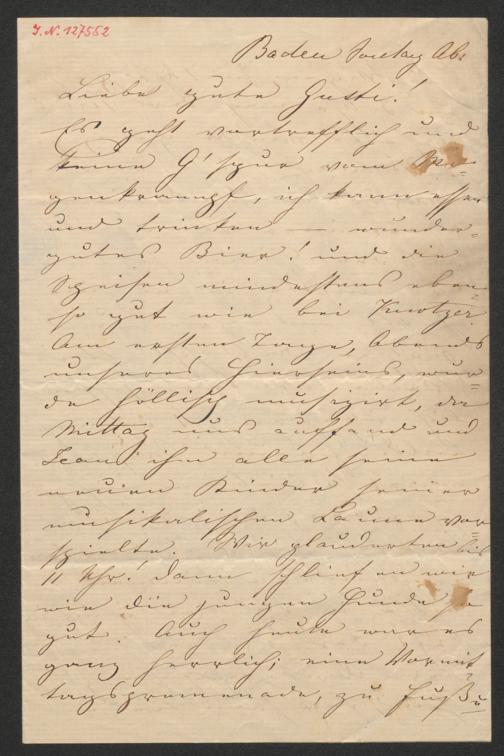 I.N. 127552
Baden Sontag Abs
Liebe gute Gusti!
Es geht vortrefflich und
keine G'spur vom Ma-
genkrampf, ich kann essen
und trinken — wunder-
gutes Bier! und die
Speisen mindestens eben-
so gut wie bei Knotzer.
Am ersten Tage, Abends
unseres Hierseins, wur-
de höllisch musizirt, da
Mittag uns auffand und
Jean ihm alle seine
neuen Kinder seiner
musikalischen Laune vor-
spielte. Wir plauderten bis
11 Uhr! dann schliefen wir
wie die jungen Hunde so
gut. Auch heute war es
ganz herrlich; eine Vormit-
tagspromenade, zu Fuß u